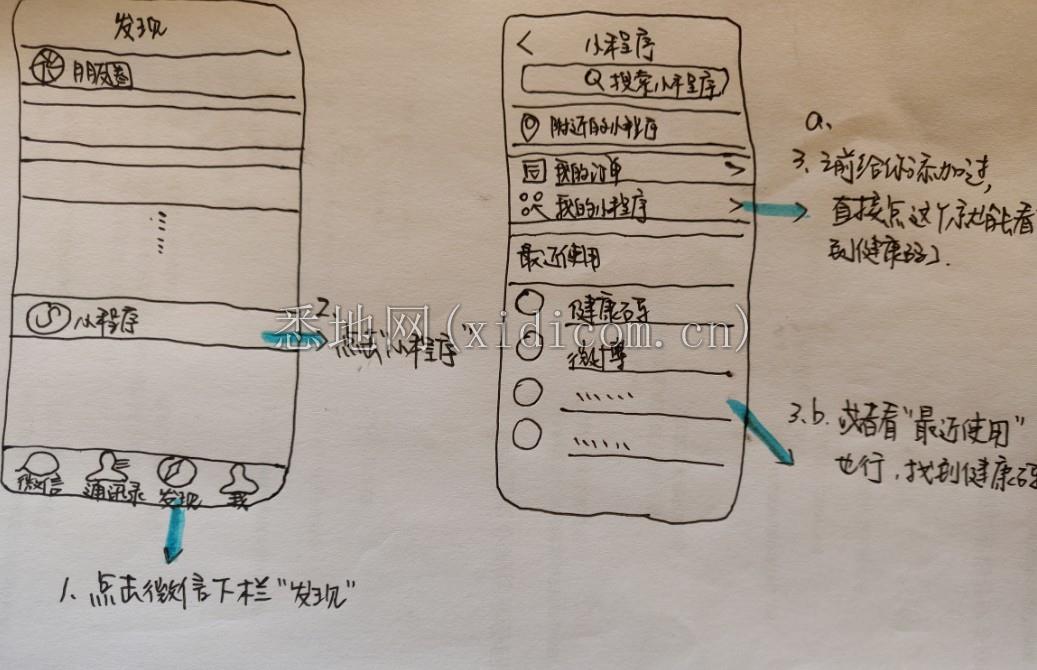 发现
朋友圈
小程序
微信
通讯录
发现
我
1、点击微信下栏“发现”
2、
点击“小程序”
小程序
搜索小程序
附近的小程序
我的订单
我的小程序
最近使用
健康码
微博
a、
3、之前给你添加过,
直接点这个就能看
到健康码了.
3.b.或者看“最近使用”
也行,找到健康码
悉地网(xidicom.cn)